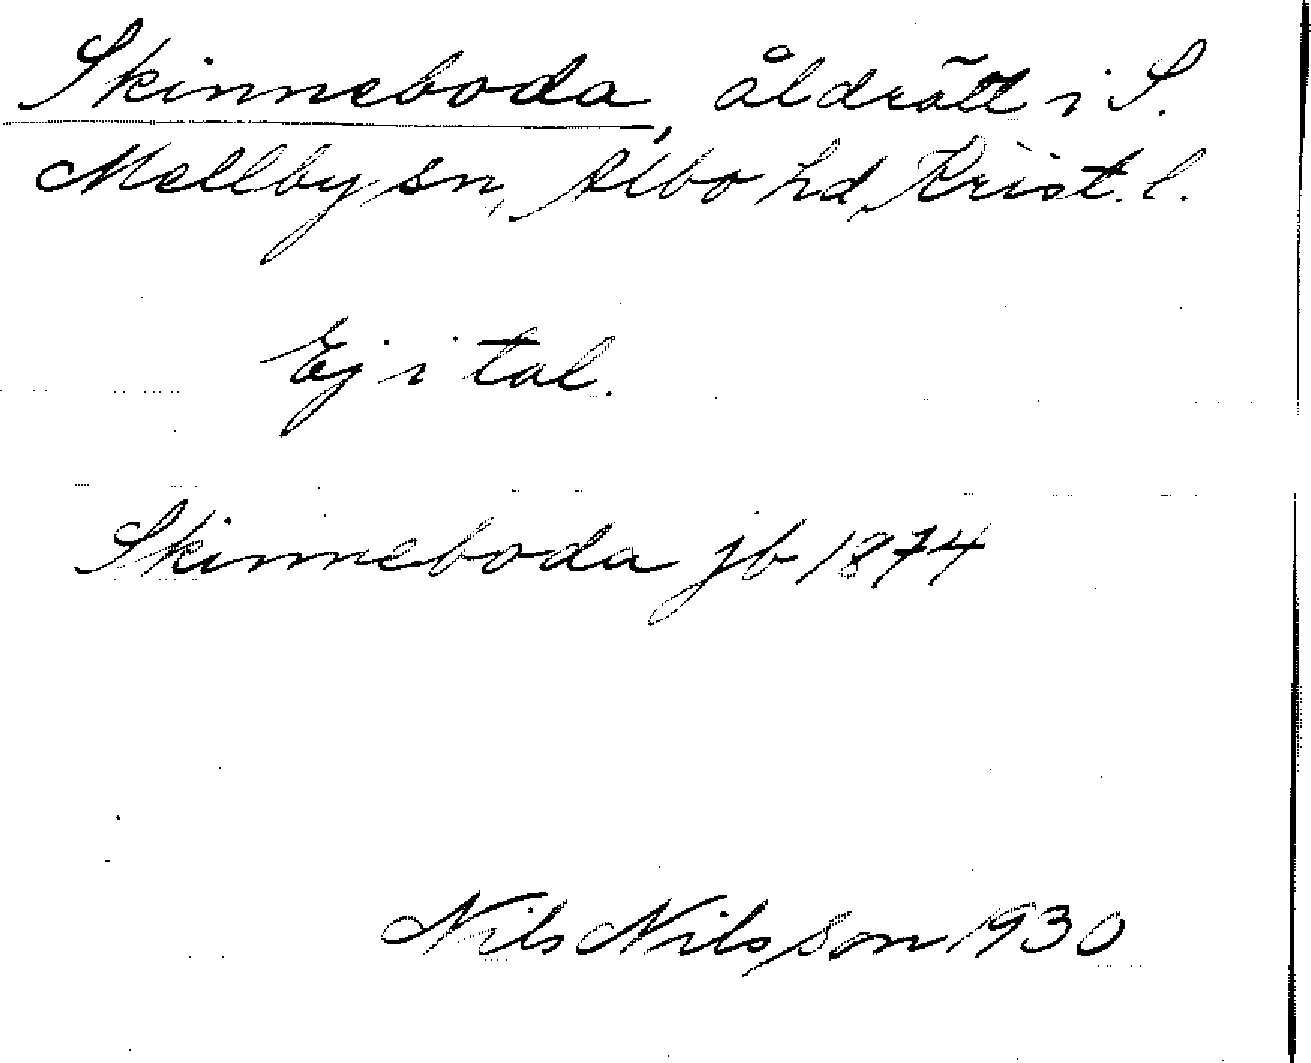 Skinneboda, åldrätt i S.
Mellby sn, Albo hd, Krist. l.
Ej i tal.
Skinneboda jb 1874
Nils Nilsson 1930